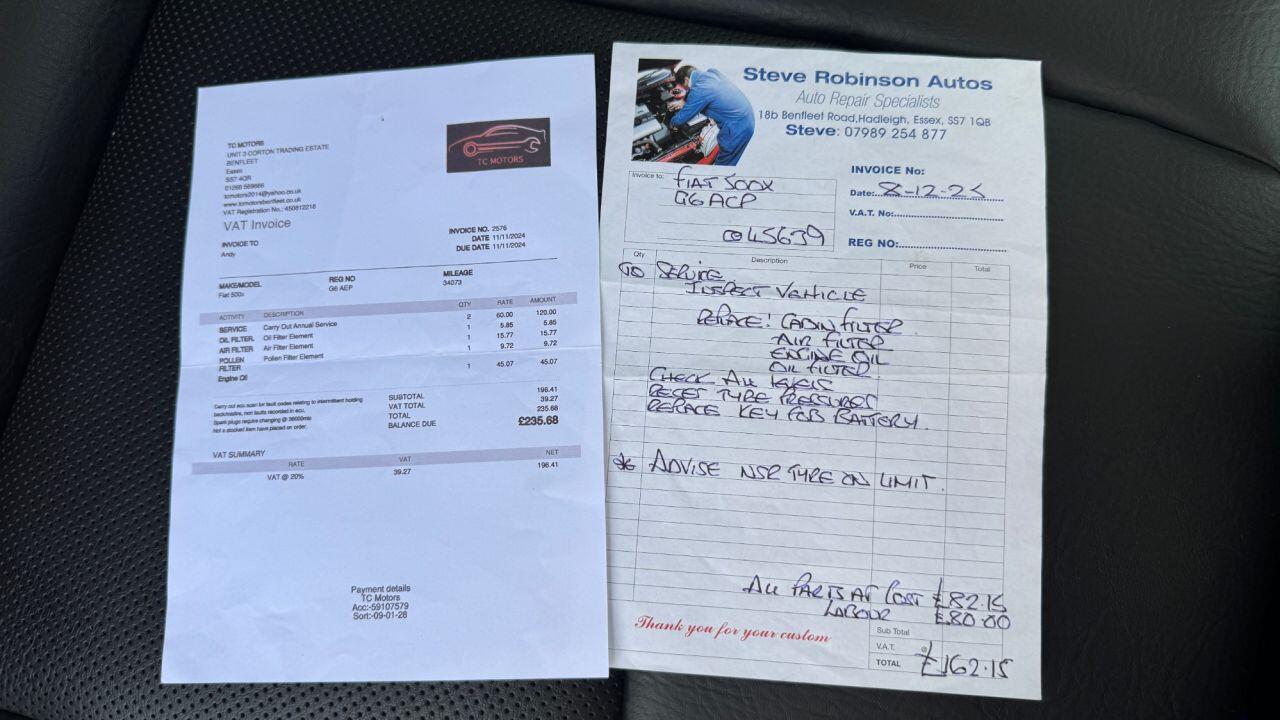 TC MOTORS
UNIT 3 CORTON TRADING ESTATE
BENFLEET
Essex
SS7 4QR
01268 569666
tcmotors2014@yahoo.co.uk
www.tcmotorsbenfleet.co.uk
VAT Registration No.: 450812218
TC MOTORS
VAT Invoice
INVOICE TO
Andy
INVOICE NO. 2576
DATE 11/11/2024
DUE DATE 11/11/2024
MAKE/MODEL REG NO MILEAGE
Fiat 500x G6 AEP 34073
ACTIVITY DESCRIPTION QTY RATE AMOUNT
SERVICE Carry Out Annual Service 2 60.00 120.00
OIL FILTER Oil Filter Element 1 5.85 5.85
AIR FILTER Air Filter Element 1 15.77 15.77
POLLEN FILTER Pollen Filter Element 1 9.72 9.72
Engine Oil 1 45.07 45.07
Carry out ecu scan for fault codes relating to intermittent holding
back/misfire, non faults recorded in ecu.
Spark plugs require changing @ 36000mls
Not a stocked item have placed on order.
SUBTOTAL 196.41
VAT TOTAL 39.27
TOTAL 235.68
BALANCE DUE £235.68
VAT SUMMARY
RATE VAT NET
VAT @ 20% 39.27 196.41
Payment details
TC Motors
Acc:-59107579
Sort:-09-01-28
Steve Robinson Autos
Auto Repair Specialists
18b Benfleet Road, Hadleigh, Essex, SS7 1QB
Steve: 07989 254 877
Invoice to: FIAT 500X
G6 ACP
@45639
INVOICE No:
Date: 8-12-25
V.A.T. No:
REG NO:
Qty Description Price Total
SERVICE
INSPECT VEHICLE
REPLACE! CABIN FILTER
AIR FILTER
ENGINE OIL
OIL FILTER
CHECK ALL LEVELS
RESET TYRE PRESSURES
REPLACE KEY FOB BATTERY.
ADVISE NSR TYRE ON LIMIT.
ALL PARTS AT COST £82.15
LABOUR £80.00
Thank you for your custom
Sub Total
V.A.T.
TOTAL £162.15